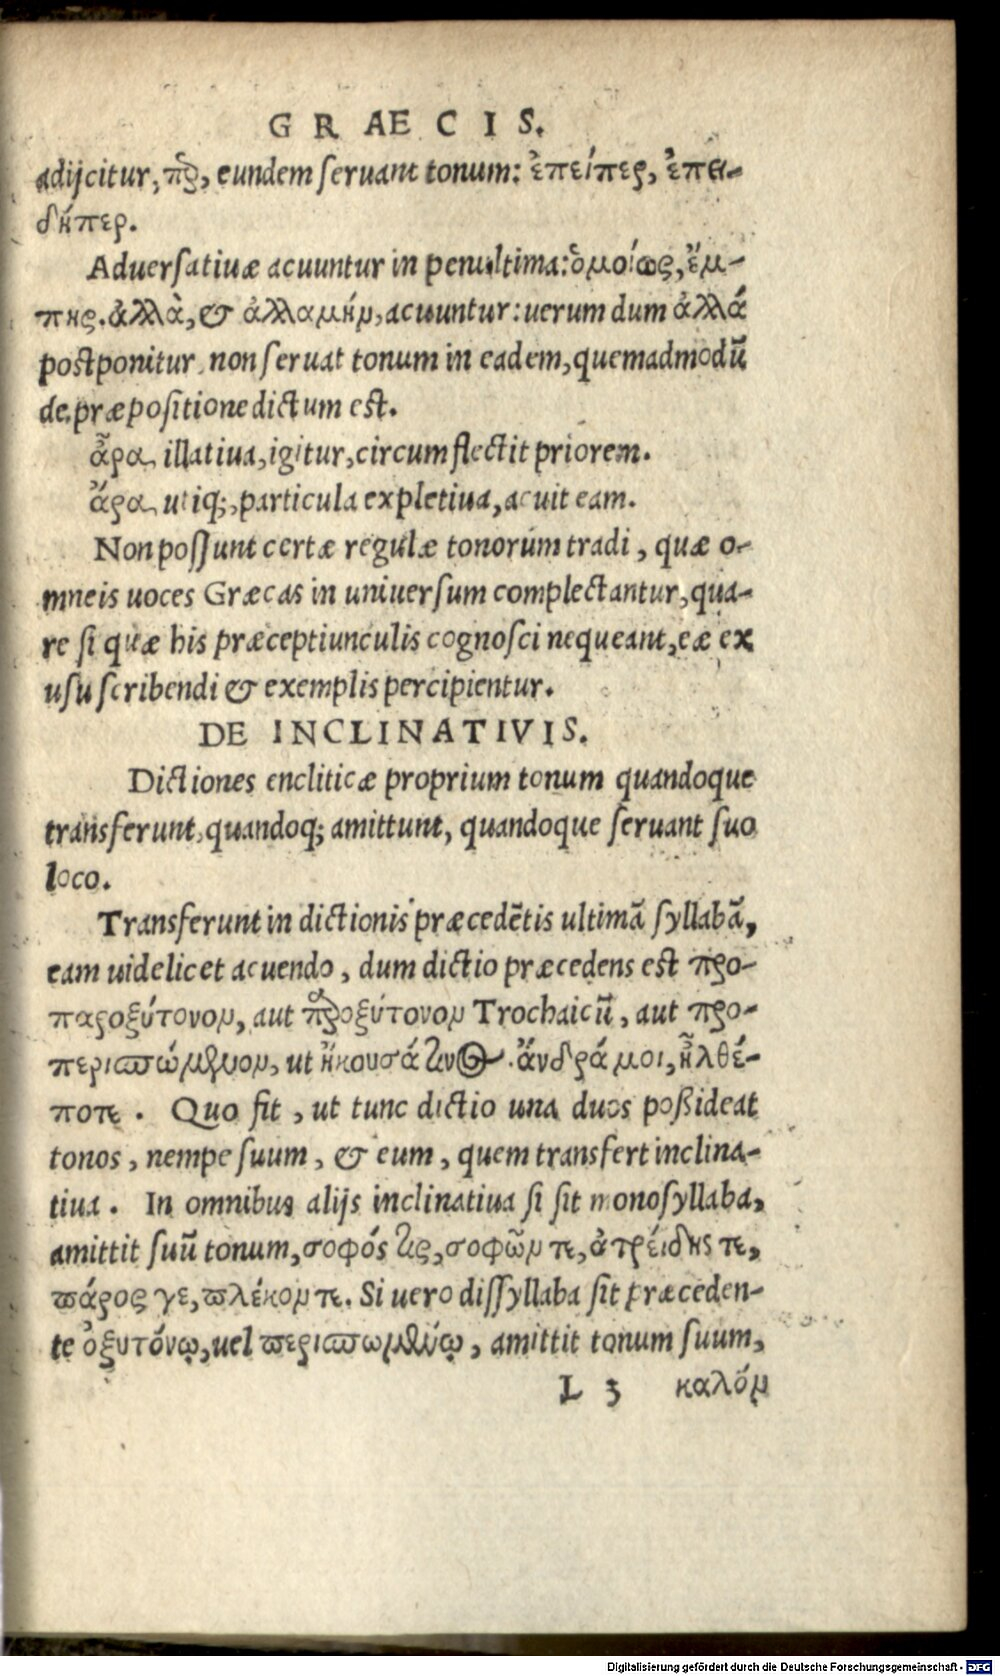 GRAECIS.
adijcitur, πὲρ, eundem seruant tonum: ἐπείπερ, ἐπει-
δήπερ.
Aduersatiuæ acuuntur in penultima: ὁμοίως, ἔμ-
πης. ἀλλὰ, & ἀλλαμήν, acuuntur: uerum dum ἀλλά
postponitur, non seruat tonum in eadem, quemadmodū
de præpositione dictum est.
ἆρα, illatiua, igitur, circumflectit priorem.
ἄρα, utiq;, particula expletiua, acuit eam.
Non possunt certæ regulæ tonorum tradi, quæ o-
mneis uoces Græcas in uniuersum complectantur, qua-
re si quæ his præceptiunculis cognosci nequeant, eæ ex
usu scribendi & exemplis percipientur.
DE INCLINATIVIS.
Dictiones encliticæ proprium tonum quandoque
transferunt, quandoq; amittunt, quandoque seruant suo
loco.
Transferunt in dictionis præcedētis ultimā syllabā,
eam uidelicet acuendo, dum dictio præcedens est προ-
παροξύτονον, aut παροξύτονον Trochaicū, aut προ-
περισπώμενον, ut ἤκουσά τινος. ἄνδρά μοι, ἦλθέ-
ποτε. Quo fit, ut tunc dictio una duos poßideat
tonos, nempe suum, & eum, quem transfert inclina-
tiua. In omnibus alijs inclinatiua si sit monosyllaba,
amittit suū tonum, σοφός τις, σοφῶν τε, ἀτρέιδης τε,
πάρος γε, πλέκον τε. Si uero dissyllaba sit præceden-
te ὀξυτόνῳ, uel περισπωμένῳ, amittit tonum suum,
L 3 καλόν
Digitalisierung gefördert durch die Deutsche Forschungsgemeinschaft - DFG